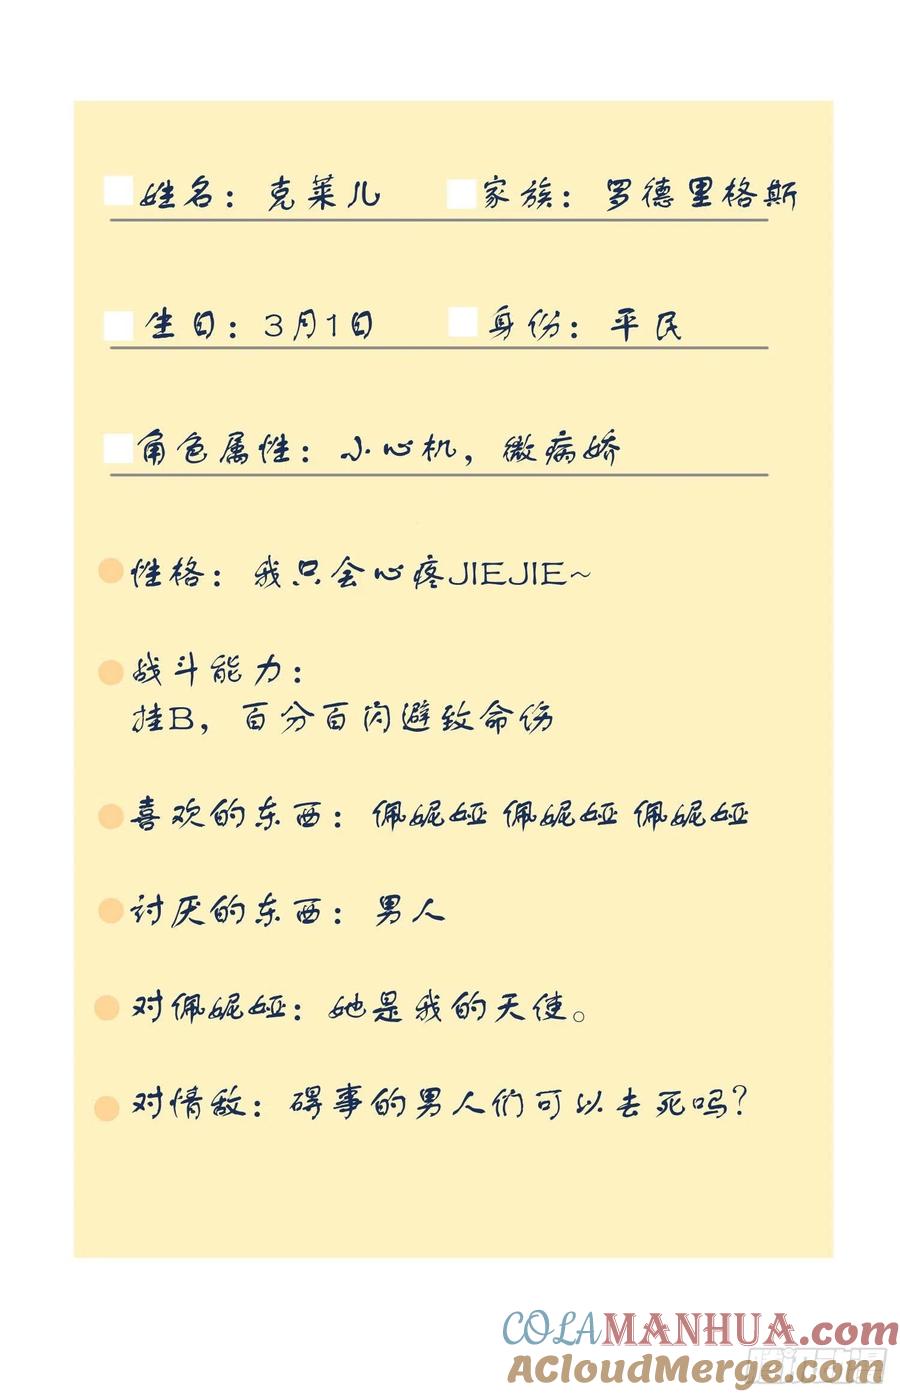 姓名：克莱儿 家族：罗德里格斯
生日：3月1日 身份：平民
角色属性：小心机，微病娇
性格：我只会心疼JIEJIE~
战斗能力：
挂B，百分百闪避致命伤
喜欢的东西：佩妮娅 佩妮娅 佩妮娅
讨厌的东西：男人
对佩妮娅：她是我的天使。
对情敌：碍事的男人们可以去死吗？
COLAMANHUA.com
ACloudMerge.com